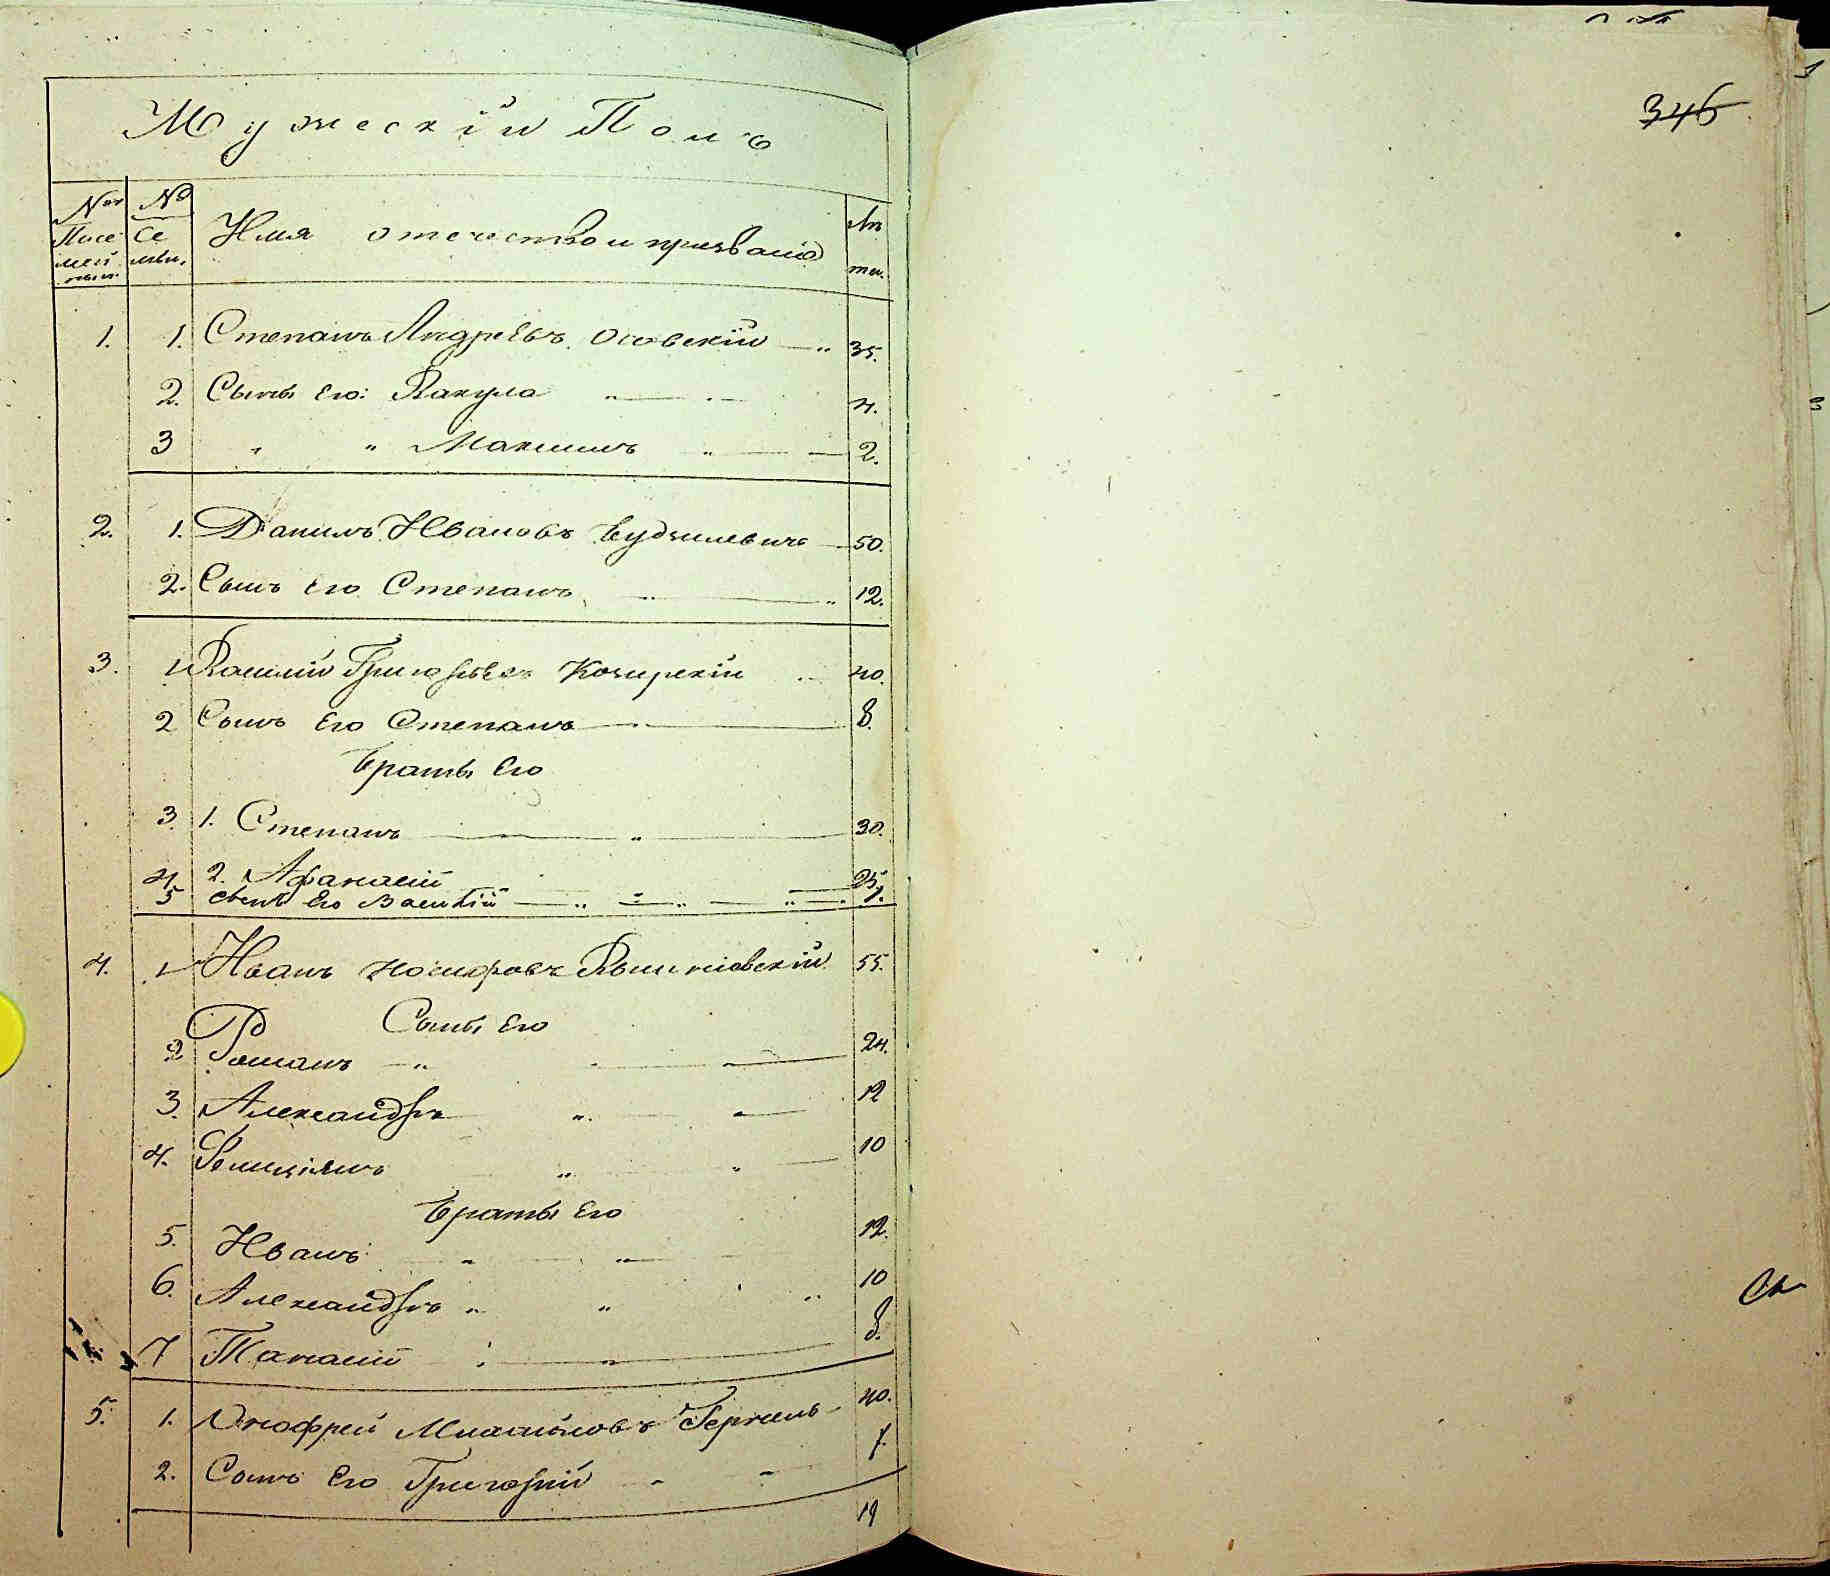 Мужескій Полъ
№ №
Посе Се
мей мьи.
ныи
Имя отечество и прозваніе
Лѣ
та.
1. 1. Степанъ Андреевъ Осовскій 35.
2. Сынъ Его: Вакула 4.
3 " " Максимъ 2.
2. 1. Данилъ Ивановъ Будзилевичъ 50.
2. Сынъ его Степанъ 12.
3. 1 Василій Григорьевъ 40.
2 Сынъ Его Степанъ 8.
Братья Его
3. 1. Степанъ 30.
4 2. Афанасій 25.
5 сынъ Его Василій 1.
4. 1 Иванъ Іосифовъ 55.
Сыны Его
2 Романъ 24.
3. Александръ 12
4. 10
Браты Его
5. Иванъ 12.
6. Александръ 10
7 Танасій 8.
5. 1. Онофрей Михайловъ 40.
2. Сынъ Его Григорій
19
346